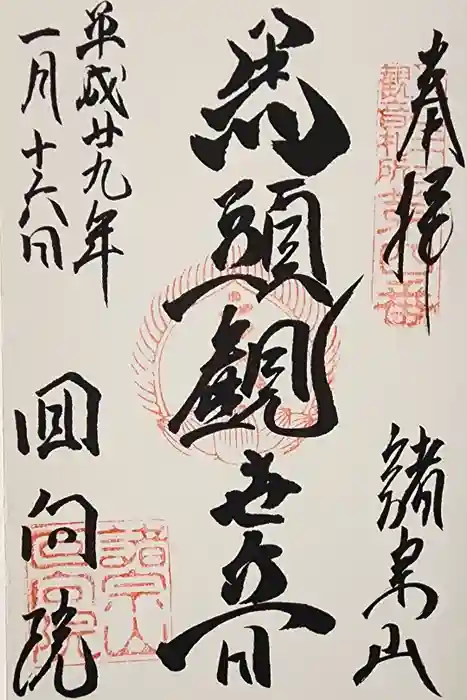 奉拝
諸宗山
馬頭観世音
平成廿九年
一月十六日
回向院
諸宗山
回向院